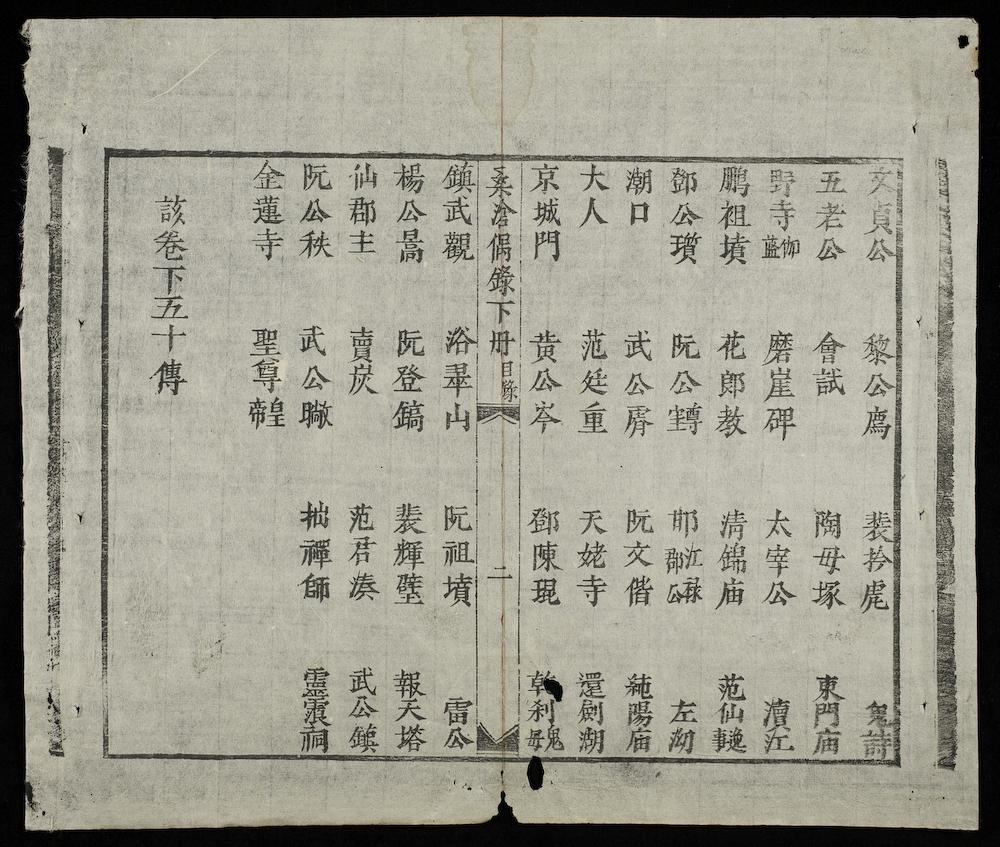 文貞公 黎公廌 裴扲虎 鬼詩
五老公 會試 陶母塚 東門庙
野寺伽藍 磨崖碑 太宰公 瀆江
鵬祖墳 花郎教 清錦庙 范仙逸事
鄧公瓆 阮公 邯江郡公祿 左泑
潮口 武公 阮文偕 純陽庙
大人 范廷重 天姥寺 還劍湖
京城門 黃公岑 鄧陳琨 乾利鬼母
桑滄偶錄下冊目錄 二
鎮武觀 浴翠山 阮祖墳 雷公
楊公暠 阮登鎬 裴輝璧 報天塔
仙郡主 賣炭 范君湊 武公鎮
阮公秩 武公 拙禪師 靈濱祠
金蓮寺 聖尊帝皇
該卷下五十傳